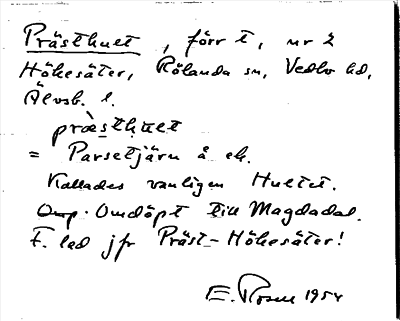 Prästhuet, förr t, nr 2
Hökesäter, Rölanda sn, Vedbo hd,
Älvsb. l.
præ̀sthuet
= Parsetjärn å ek.
Kallades vanligen Hultet.
Omdöpt till Magdadal.
F. led jfr Präst-Hökesäter!
E. Rosen 1954